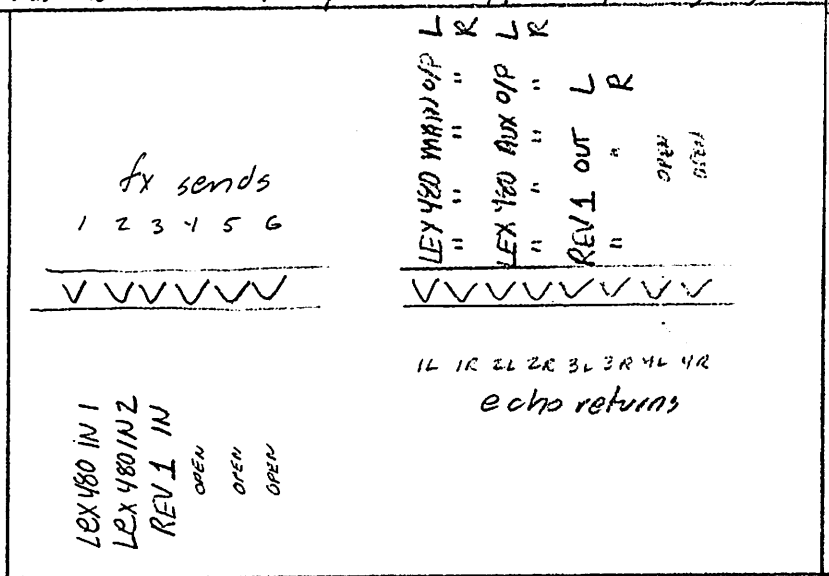 fx sends
1 2 3 4 5 6
LEX 480 IN 1
LEX 480 IN 2
REV 1 IN
OPEN
OPEN
OPEN
LEX 480 MAIN O/P L
" " " " R
LEX 480 AUX O/P L
" " " " R
REV 1 OUT L
" " R
OPEN
OPEN
1L 1R 2L 2R 3L 3R 4L 4R
echo returns